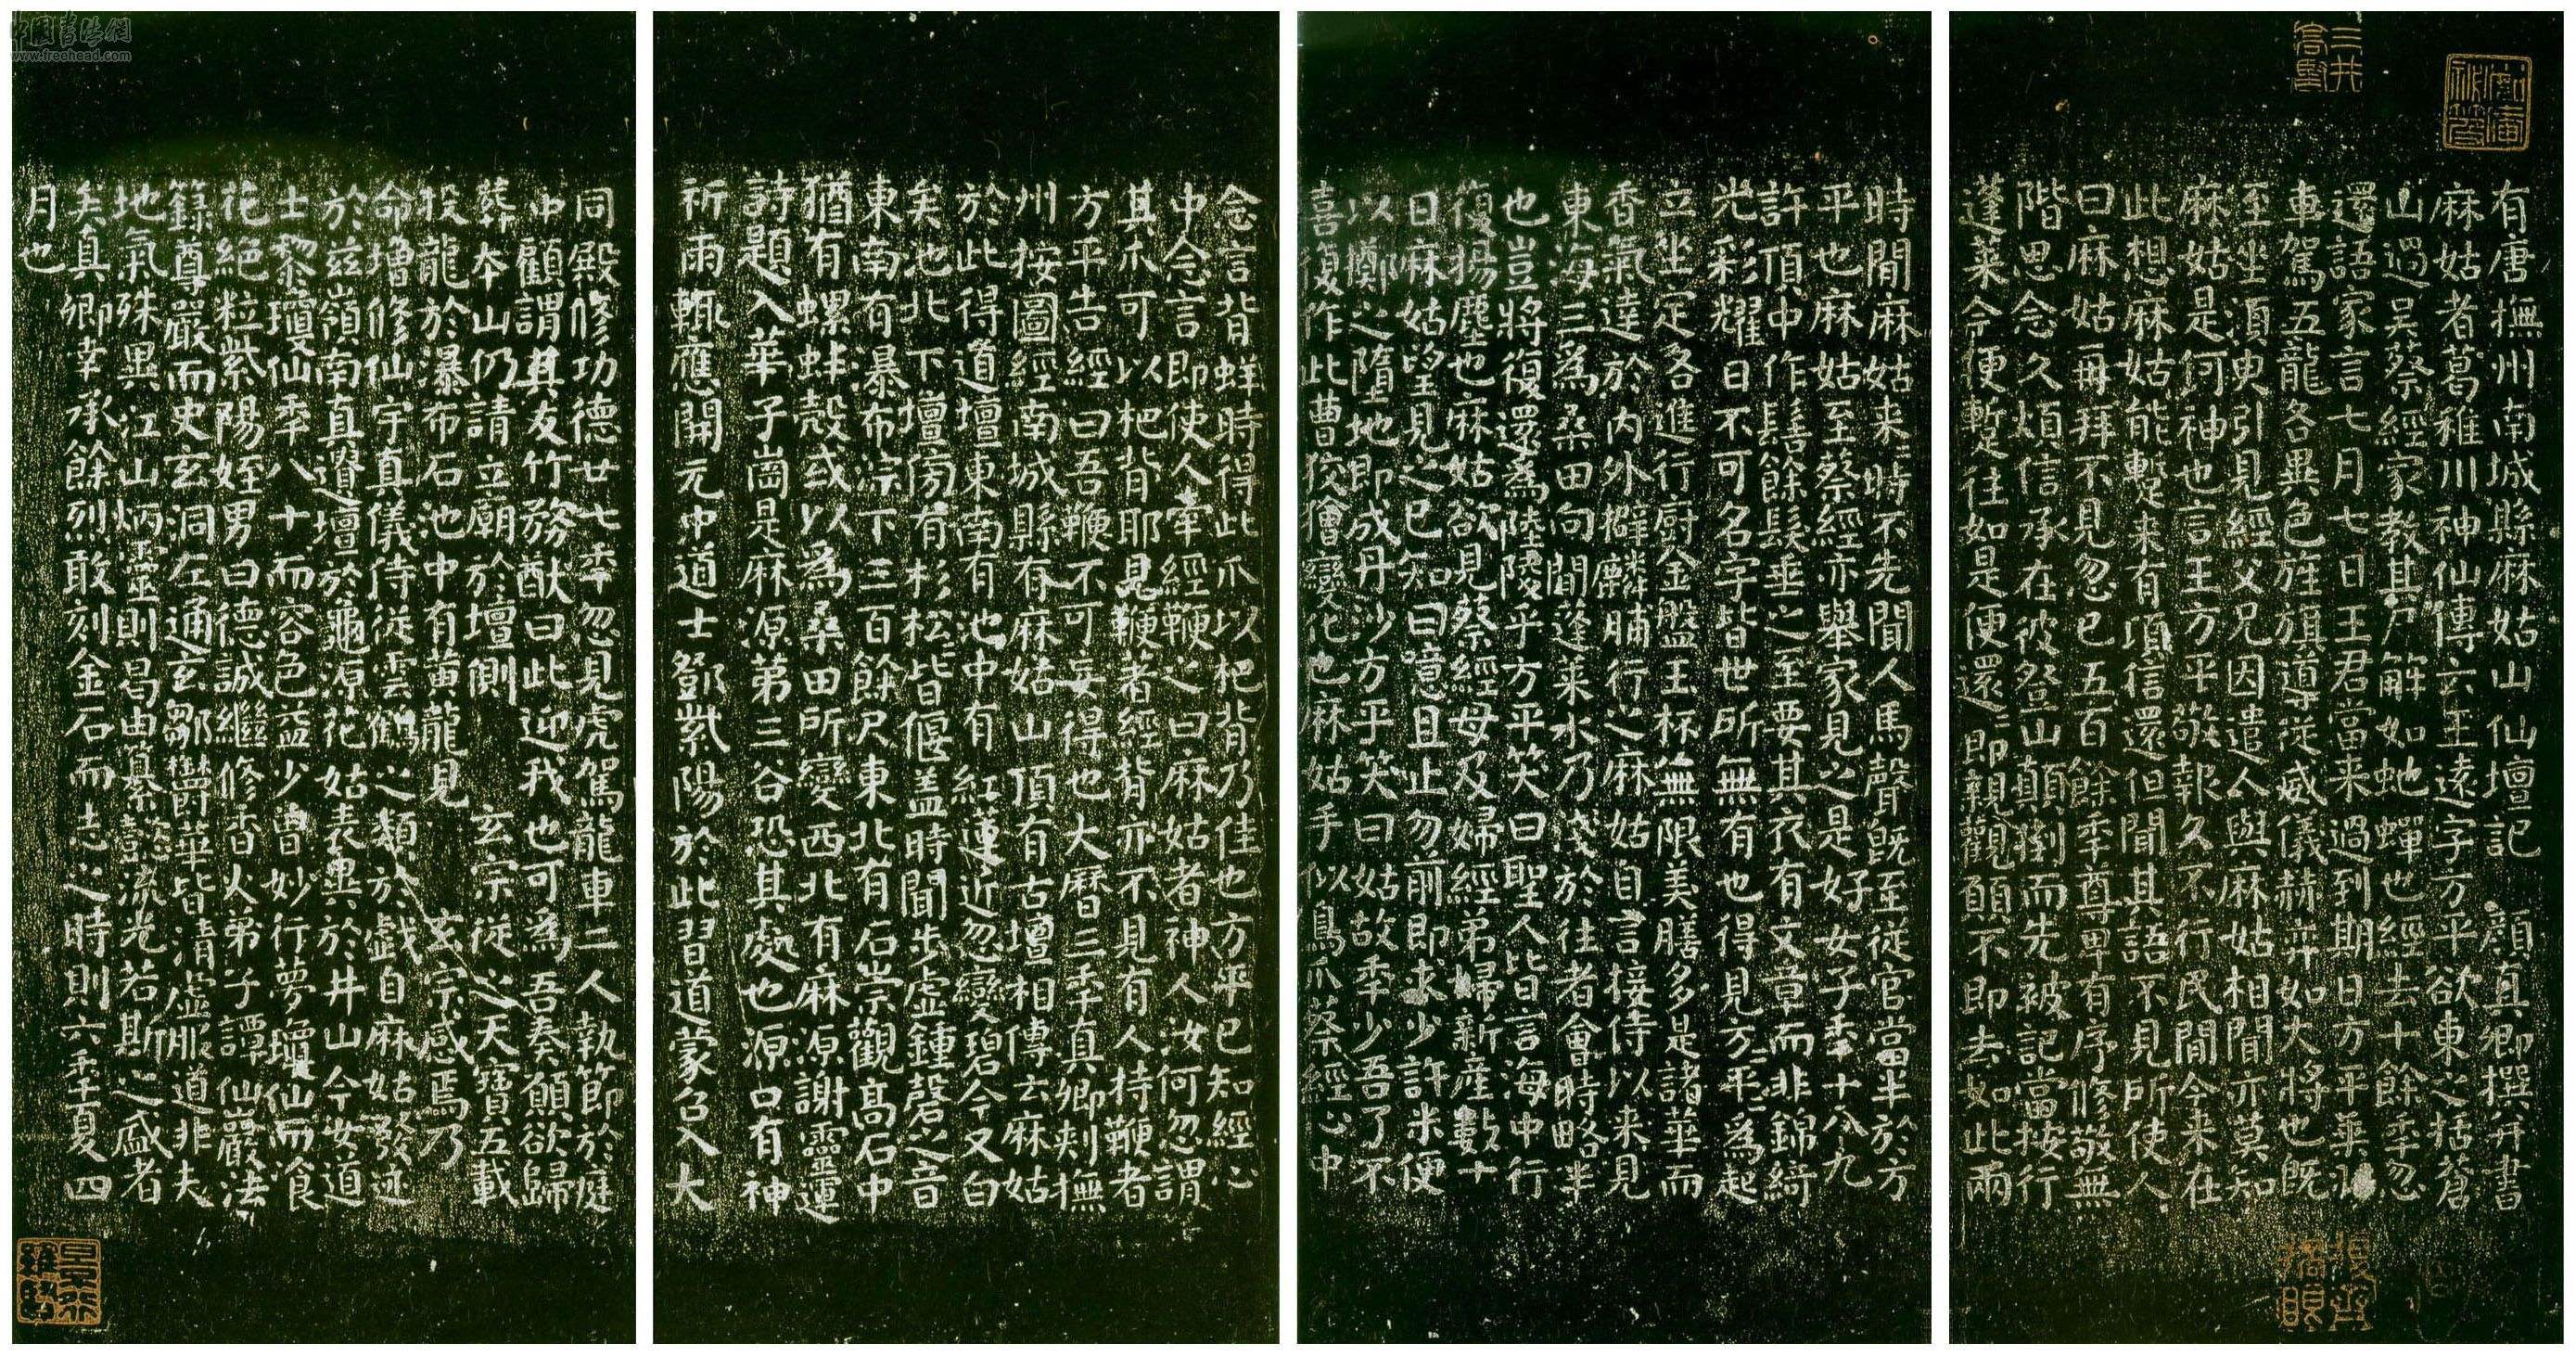 有唐撫州南城縣麻姑山仙壇記 顏真卿撰并書
麻姑者葛稚川神仙傳云王遠字方平欲東之括蒼
山過吳蔡經家教其尸解如虵蟬也經去十餘年忽
還語家言七月七日王君當来過到期日方平乘
車駕五龍各異色旌旗導從威儀赫弈如大將也既
至坐須臾引見經父兄因遣人與麻姑相聞亦莫知
麻姑是何神也言王方平敬報久不行民間今来在
此想麻姑能暫来有頃信還但聞其語不見所使人
曰麻姑再拜不見忽已五百餘年尊卑有序修敬無
階思念久煩信承在彼登山顛倒而先被記當按行
蓬萊今便暫往如是便還還即親觀願不即去如此兩
時間麻姑来来時不先聞人馬聲既至從官當半於方
平也麻姑至蔡經亦舉家見之是好女子年十八九
許頂中作髻餘髮垂之至要其衣有文章而非錦綺
光彩耀日不可名字皆世所無有也得見方平方平為起
立坐定各進行厨金盤玉杯無限美膳多是諸華而
香氣達於内外擗麟脯行之麻姑自言接侍以来見
東海三為桑田向間蓬萊水乃淺於往者會時略半
也豈將復還為陸陵乎方平笑曰聖人皆言海中行
復揚塵也麻姑欲見蔡經母及婦經弟婦新產數十
日麻姑望見之已知曰噫且止勿前即求少許米便
以擲之墮地即成丹沙方平笑曰姑故年少吾了不
喜復作此曹狡獪變化也麻姑手似鳥爪蔡經心中
念言背蛘時得此爪以杷背乃佳也方平已知經心
中念言即使人牽經鞭之曰麻姑者神人汝何忽謂
其爪可以杷背耶見鞭著經背亦不見有人持鞭者
方平告經曰吾鞭不可妄得也大曆三年真卿刺撫
州按圖經南城縣有麻姑山頂有古壇相傳云麻姑
於此得道壇東南有池中有 紅蓮近忽變碧今又白
矣池北下壇傍有杉松皆偃盖時聞步虛鍾磬之音
東南有瀑布淙下三百餘尺東北有石崇觀高石中
猶有螺蚌殼或以為桑田所變西北有麻源謝靈運
詩題入華子崗是麻源第三谷恐其處也源口有神
祈雨輒應開元中道士鄧紫陽於此習道蒙召入大
同殿修功德廿七年忽見虎駕龍車二人執節於庭
中顧謂其友竹務猷曰此迎我也可為吾奏願欲歸
葬本山仍請立廟於壇側 玄宗從之天寶五載
投龍於瀑布石池中有黃龍見 玄宗感焉乃
命增修仙宇真儀侍從雲鶴之類於戲自麻姑發迹
於兹嶺南真遺壇於龜源花姑表異於井山今女道
士黎瓊仙年八十而容色益少曾妙行夢瓊仙而飡
花絕粒紫陽姪男曰德誠繼修香火弟子譚仙巖法
籙尊嚴而史玄洞左通玄鄒鬱華皆清虛服道非夫
地氣殊異江山炳靈則曷由纂懿流光若斯之盛者
矣真卿幸承餘烈敢刻金石而志之時則六年夏四
月也